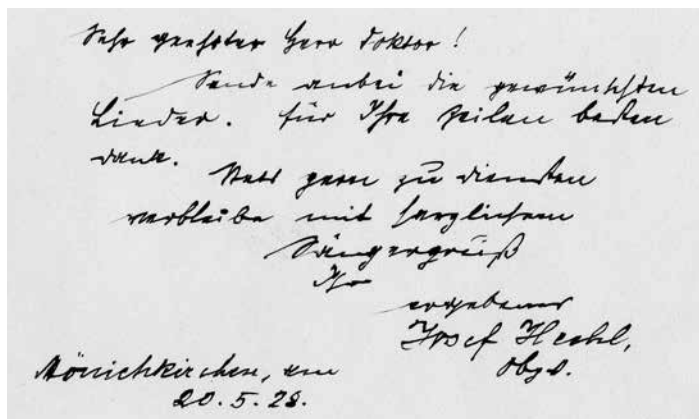 Sehr geehrter Herr Doktor!
Sende anbei die gewünschten
Lieder. Für Ihre Zeilen besten
Dank.
Stets gern zu Diensten
verbleibe mit herzlichem
Sängergruß
Ihr
ergebener
Josef
Obgd.
Mönichkirchen, am
20.5.28.